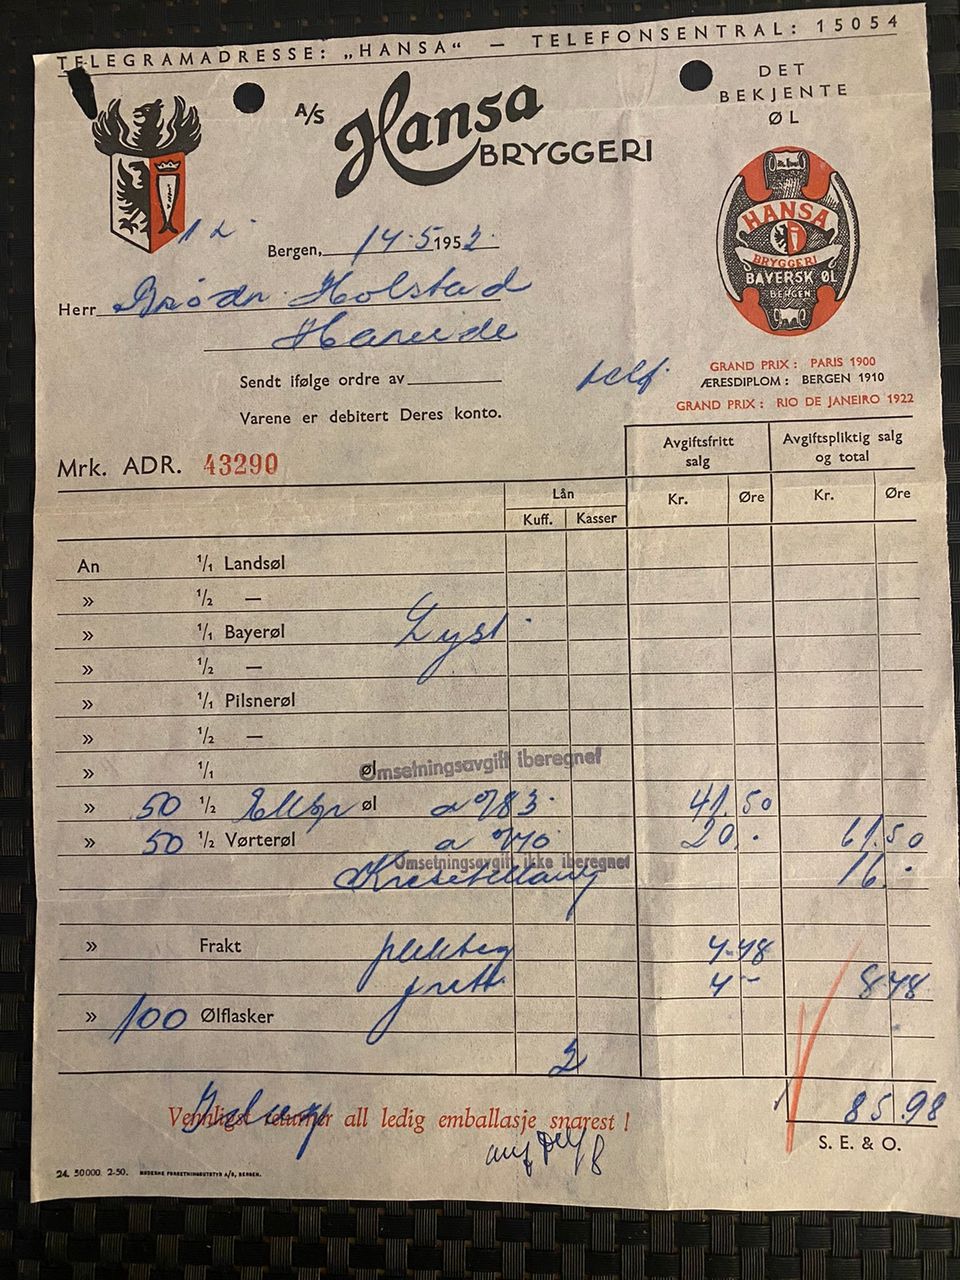 TELEGRAMADRESSE: „HANSA“ — TELEFONSENTRAL: 15054
A/S Hansa
BRYGGERI
DET
BEKJENTE
ØL
HANSA
BRYGGERI
BAYERSK ØL
BERGEN
Bergen, 14-5 1953
Herr Brødr. Holstad
Sendt ifølge ordre av
Varene er debitert Deres konto.
GRAND PRIX: PARIS 1900
ÆRESDIPLOM: BERGEN 1910
GRAND PRIX: RIO DE JANEIRO 1922
Mrk. ADR. 43290
Avgiftsfritt salg
Avgiftspliktig salg og total
Lån
Kr. Øre Kr. Øre
Kuff. Kasser
An 1/1 Landsøl
» 1/2 —
» 1/1 Bayerøl Lyst
» 1/2 —
» 1/1 Pilsnerøl
» 1/2 —
» 1/1 øl Omsetningsavgift iberegnet
» 50 1/2 øl a 0/83 41.50
» 50 1/2 Vørterøl a 0/40 20.- 61.50
Omsetningsavgift ikke iberegnet
16.-
» Frakt 4-48
4- 8.48
» 100 Ølflasker
2
Vennligst returner all ledig emballasje snarest !
85.98
S. E. & O.
24. 50000. 2-50. MODERNE FORRETNINGSUTSTYR A/S, BERGEN.